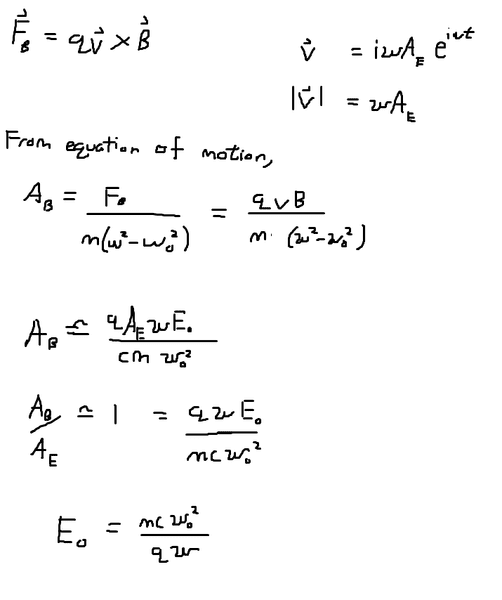 \vec{F}_B = q\vec{v} \times \vec{B}
\vec{v} = iωA_E e^{iωt}
|\vec{v}| = ωA_E
From equation of motion,
A_B = \frac{F_0}{m(ω^2-ω_0^2)} = \frac{qvB}{m \cdot (ω^2-ω_0^2)}
A_B ≃ \frac{qA_E ωE_0}{cm ω_0^2}
\frac{A_B}{A_E} ≃ 1 = \frac{qωE_0}{mcω_0^2}
E_0 = \frac{mcω_0^2}{qω}